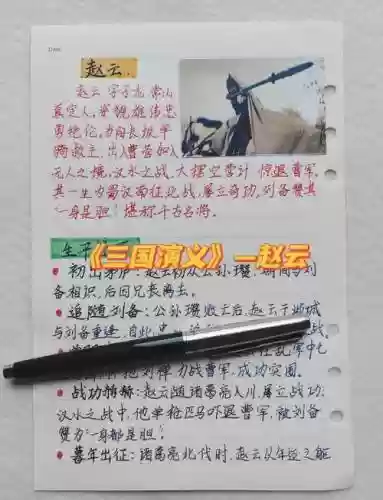 赵云
赵云 字子龙 常山
真定人。
忠勇绝伦。
两救主,出入曹营如入
无人之境,汉水之战,大摆空营计 惊退曹军,
其一生为蜀汉南征北战,屡立奇功,刘备赞其
“一身是胆” 堪称千古名将。
《三国演义》—赵云
生平
• 初出茅庐:赵云初从公孙瓒,期间与刘
备相识,后因兄丧离去。
• 追随刘备:公孙瓒败亡后,赵云于邺城
与刘备重逢,自此,
战曹军,成功突围。
• 战功特称:赵云随诸葛亮入川,屡立战功,
汉水之战中,他单枪匹马吓退曹军,被刘备
赞为“一身都是胆”!
• 暮年出征:诸葛亮北伐时,赵云以年迈之躯